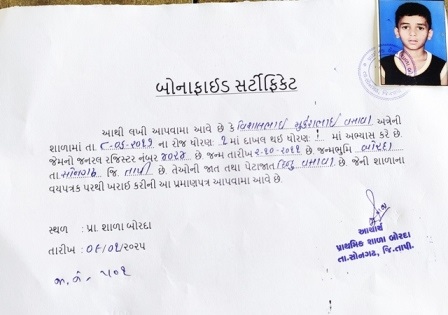 બોનાફાઈડ સર્ટીફિકેટ
આથી લખી આપવામાં આવે છે કે વિશાલભાઈ સુરેશભાઈ વસાવા અત્રેની
શાળામાં તા. ૮-૦૬-૨૦૧૭ ના રોજ ધોરણ: ૧ માં દાખલ થઈ ધોરણ: માં અભ્યાસ કરે છે.
જેમનો જનરલ રજિસ્ટર નંબર છે. જન્મ તારીખ ૨-૧૦-૨૦૧૧ છે. જન્મભૂમિ બોરદા
તા. સોનગઢ જિ. તાપી છે. તેઓની જાત તથા પેટાજાત હિન્દુ વસાવા છે. જેની શાળાના
વયપત્રક પરથી ખરાઈ કરીની આ પ્રમાણપત્ર આપવામાં આવે છે.
સ્થળ : પ્રા. શાળા બોરદા
તારીખ : ૦૬/૦૧/૨૦૨૫
જા. નં. - ૫૦૧
આચાર્ય
પ્રાથમિક શાળા બોરદા
તા.સોનગઢ, જિ.તાપી.